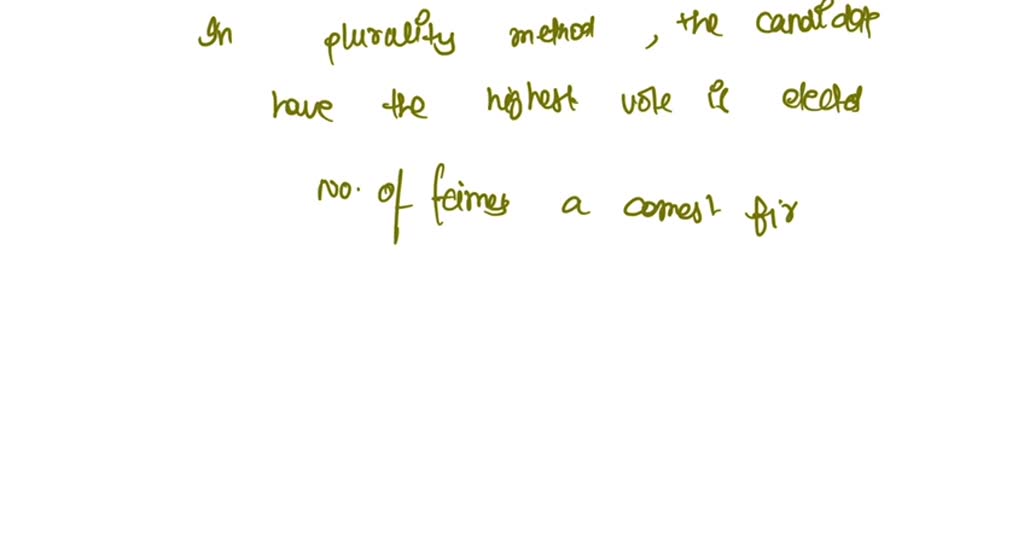 In plurality method , the candidate
have the highest vote is elected
No. of times a comest fir